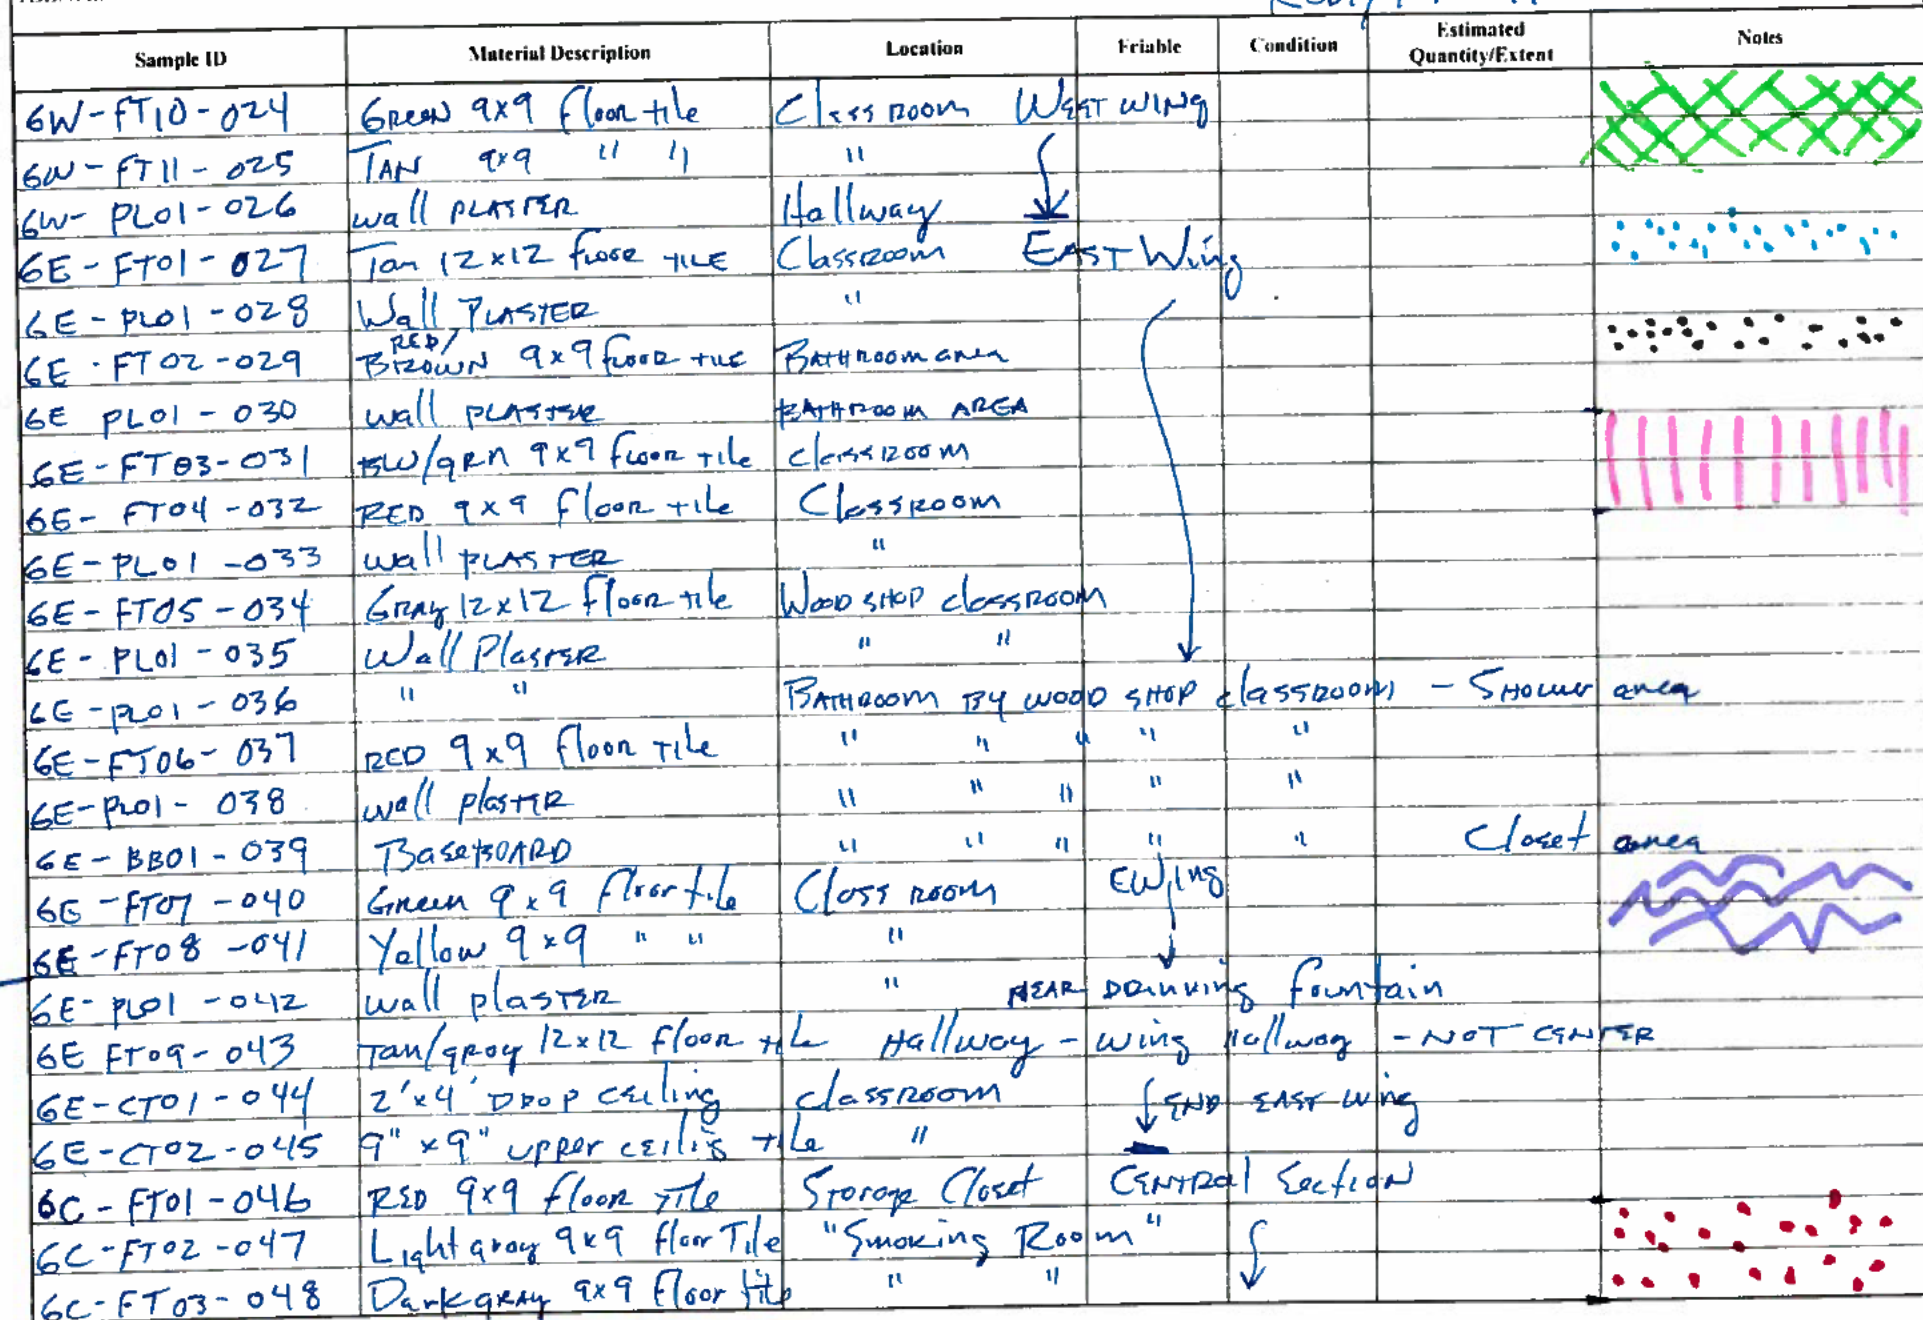 Sample ID Material Description Location Friable Condition Estimated Quantity/Extent Notes
6W-FT10-024 Green 9x9 floor tile Classroom West wing
6W-FT11-025 TAN 9x9 " " "
6W-PL01-026 wall PLASTER Hallway
6E-FT01-027 Tan 12x12 floor TILE Classroom EAST Wing
6E-PL01-028 Wall PLASTER "
6E-FT02-029 RED/BROWN 9x9 floor tile BATHROOM area
6E PL01-030 wall PLASTER BATHROOM AREA
6E-FT03-031 BW/GRN 9x9 floor tile classroom
6E-FT04-032 RED 9x9 floor tile Classroom
6E-PL01-033 wall PLASTER "
6E-FT05-034 Gray 12x12 floor tile Wood SHOP classroom
6E-PL01-035 Wall Plaster " "
6E-PL01-036 " " BATHROOM BY WOOD SHOP classroom - Shower area
6E-FT06-037 RED 9x9 floor tile " " " " "
6E-PL01-038 wall plaster " " " " "
6E-BB01-039 BaseBOARD " " " " " Closet area
6E-FT07-040 Green 9x9 floor tile Class room E Wing
6E-FT08-041 Yellow 9x9 " " "
6E-PL01-042 wall plaster " NEAR Drinking fountain
6E FT09-043 Tan/gray 12x12 floor tile Hallway - wing Hallway - NOT CENTER
6E-CT01-044 2'x4' DROP ceiling classroom END EAST wing
6E-CT02-045 9"x9" upper ceilig tile "
6C-FT01-046 RED 9x9 floor tile Storage Closet CENTRAL Section
6C-FT02-047 Light gray 9x9 floor Tile "Smoking Room"
6C-FT03-048 Dark gray 9x9 floor tile " "